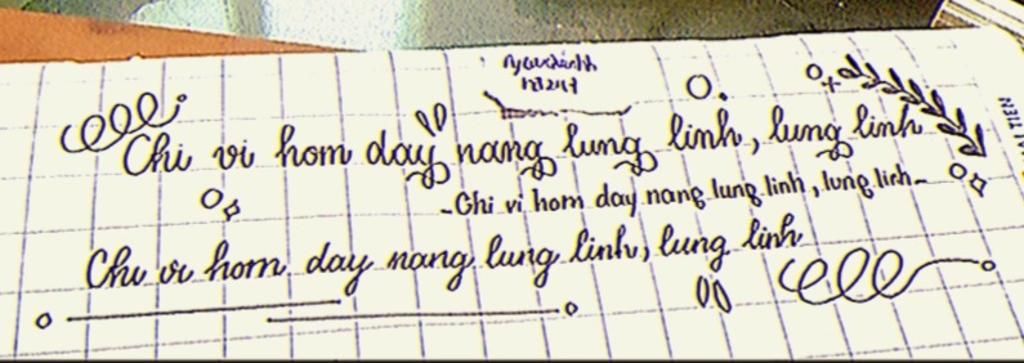 Chi vi hom day nang lung linh, lung linh
-Chi vi hom day nang lung linh, lung linh-
Chi vi hom day nang lung linh, lung linh